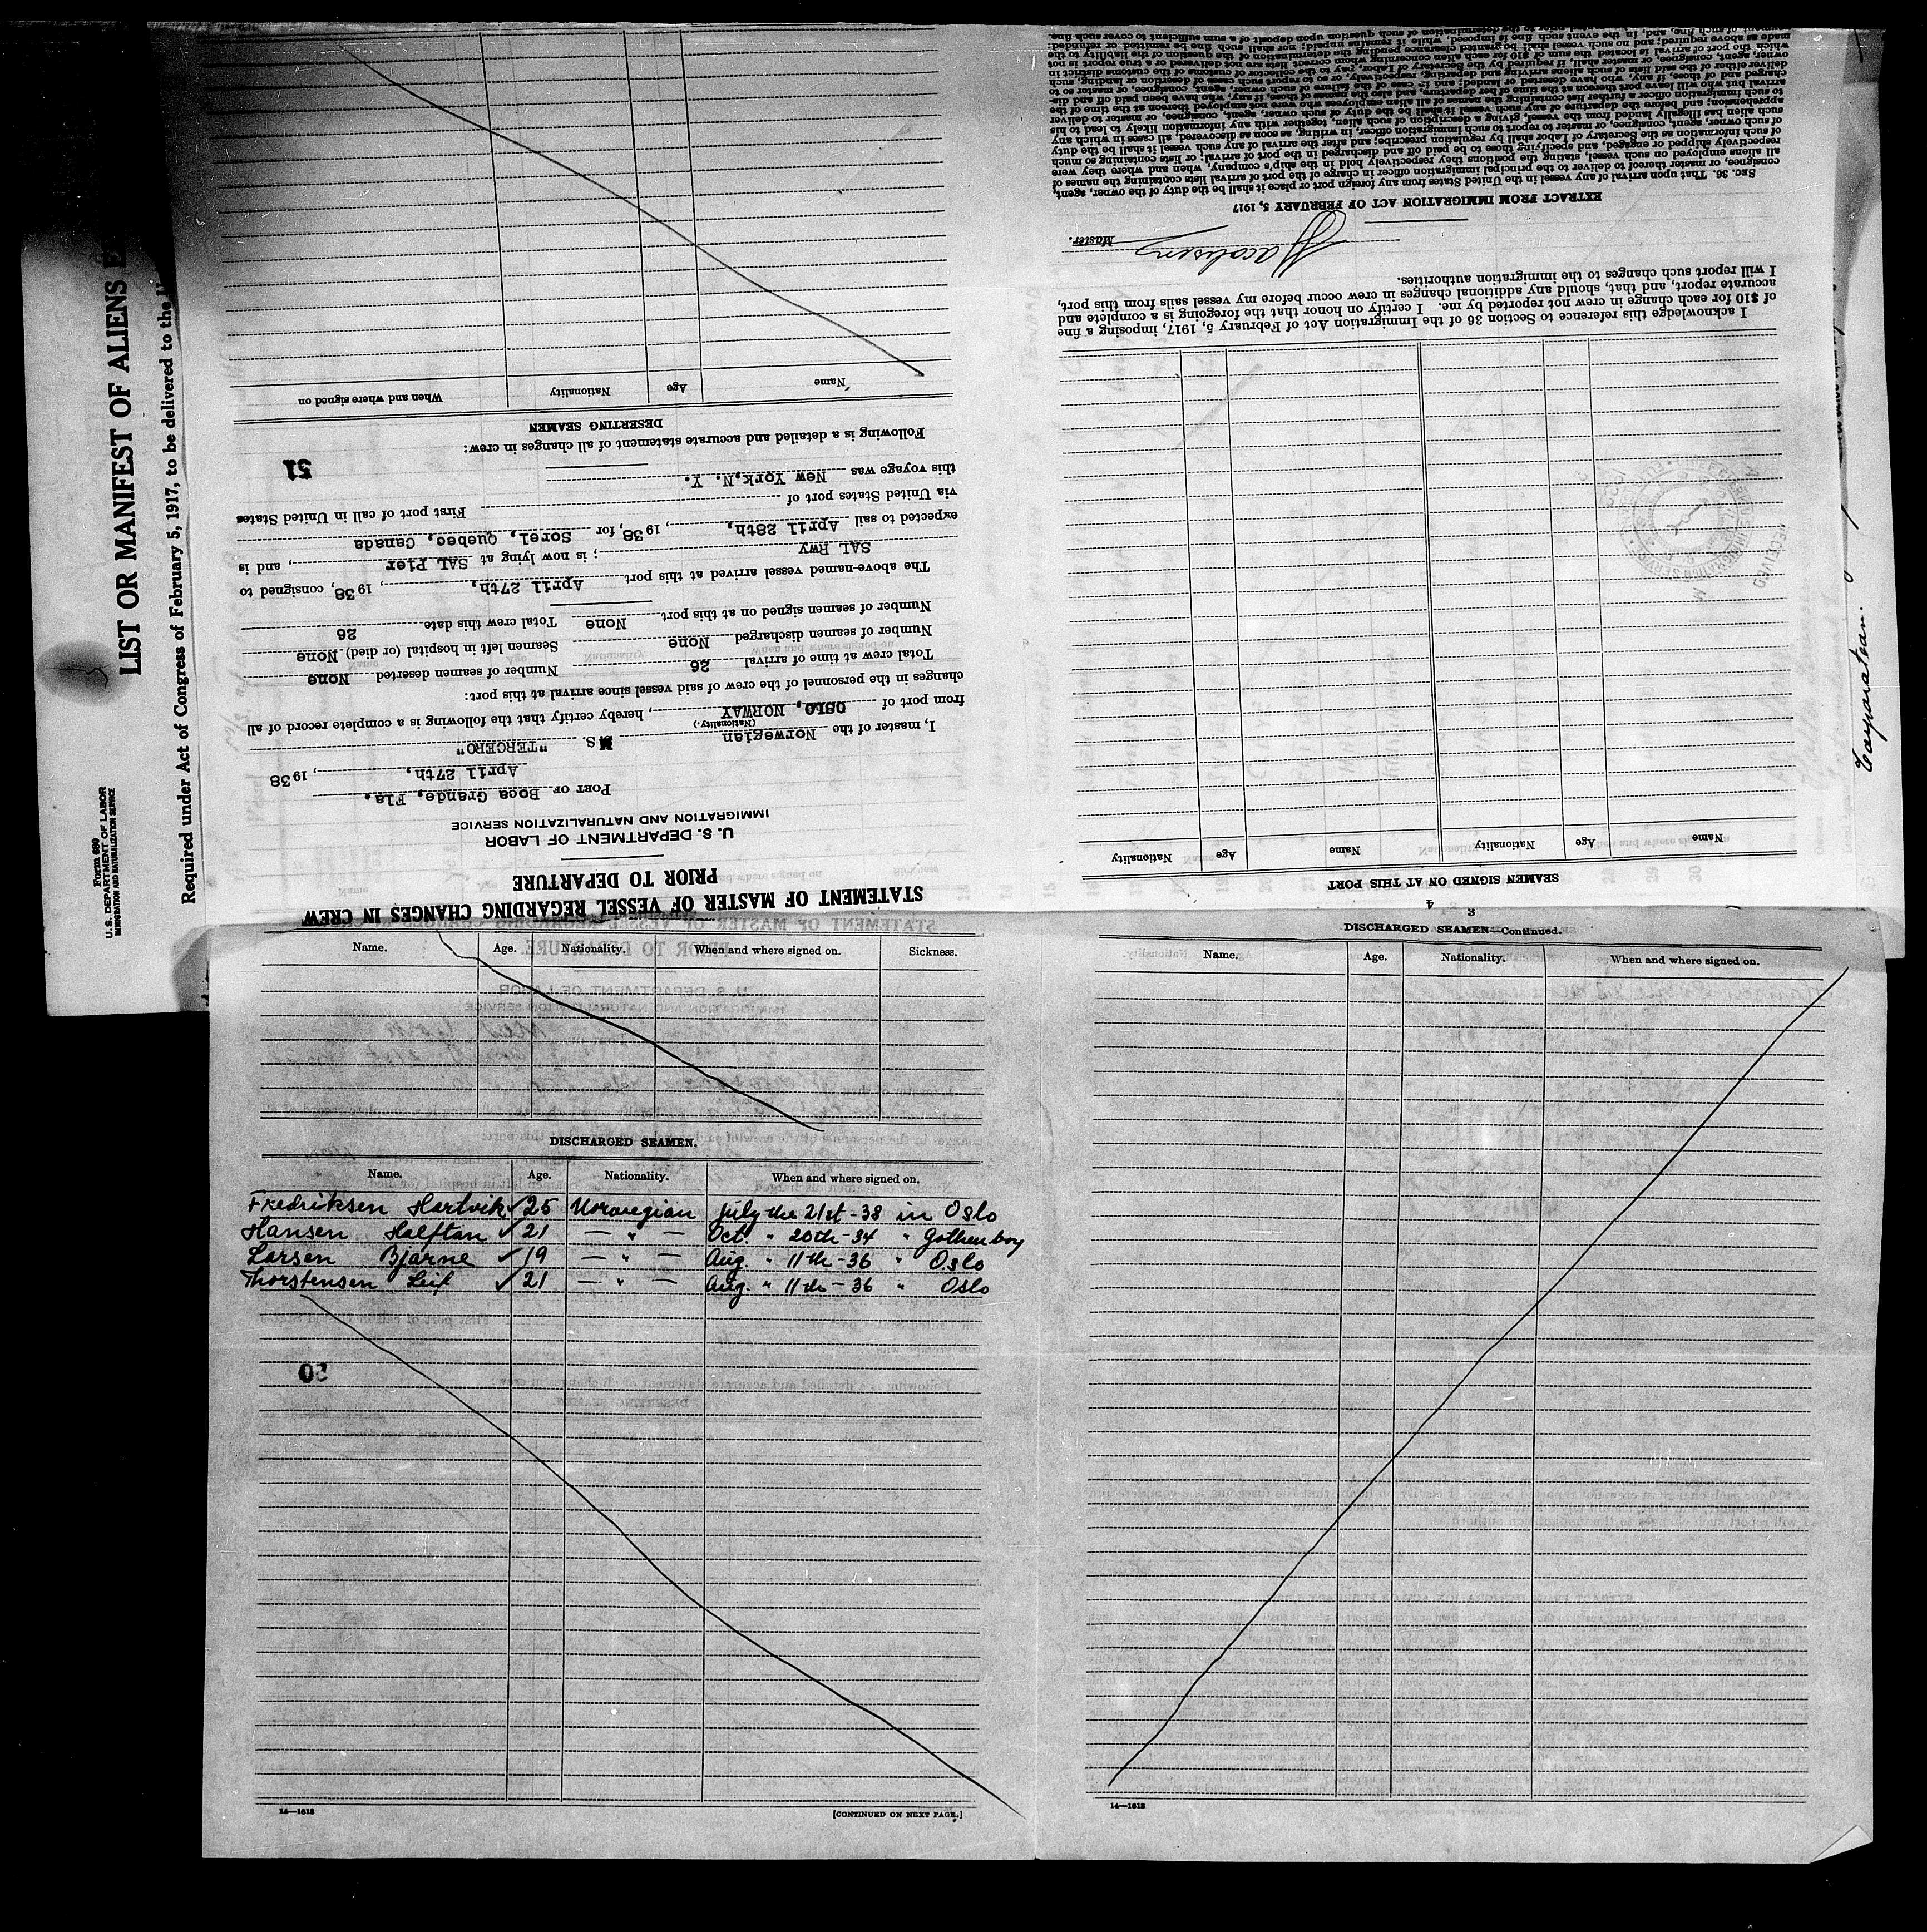 LIST OR MANIFEST OF ALIENS
Required under Act of Congress of February 5, 1917, to be delivered to the
Form 680
U. S. DEPARTMENT OF LABOR
IMMIGRATION AND NATURALIZATION SERVICE
STATEMENT OF MASTER OF VESSEL REGARDING CHANGES IN CREW
PRIOR TO DEPARTURE
U. S. DEPARTMENT OF LABOR
IMMIGRATION AND NATURALIZATION SERVICE
PORT OF Boca Grande, Fla.
April 27th, , 1938
I, master of the Norwegian M S. "TERCERO"
(Nationality.)
from port of OSLO, NORWAY , hereby certify that the following is a complete record of all
changes in the personnel of the crew of said vessel since arrival at this port:
Total crew at time of arrival 26 Number of seamen deserted None
Number of seamen discharged None Seamen left in hospital (or died) None
Number of seamen signed on at this port None Total crew this date 26
The above-named vessel arrived at this port April 27th, , 1938, consigned to
SAL RWY ; is now lying at SAL Pier , and is
expected to sail April 28th, , 1938, for Sorel, Quebec, Canada
via United States port of First port of call in United States
this voyage was New York, N. Y.
51
Following is a detailed and accurate statement of all changes in crew:
DESERTING SEAMEN
Name Age Nationality When and where signed on
4
SEAMEN SIGNED ON AT THIS PORT
Name Age Nationality Name Age Nationality
I acknowledge this reference to Section 36 of the Immigration Act of February 5, 1917, imposing a fine
of $10 for each change in crew not reported by me. I certify on honor that the foregoing is a complete and
accurate report, and that, should any additional changes in crew occur before my vessel sails from this port,
I will report such changes to the immigration authorities.
Jacobsens Master.
EXTRACT FROM IMMIGRATION ACT OF FEBRUARY 5, 1917
SEC. 36. That upon arrival of any vessel in the United States from any foreign port or place it shall be the duty of the owner, agent,
consignee, or master thereof to deliver to the principal immigration officer in charge of the port of arrival lists containing the names of
all aliens employed on such vessel, stating the positions they respectively hold in the ship's company, when and where they were
respectively shipped or engaged, and specifying those to be paid off and discharged in the port of arrival; or lists containing so much
of such information as the Secretary of Labor shall by regulation prescribe; and after the arrival of any such vessel it shall be the duty
of such owner, agent, consignee, or master to report to such immigration officer, in writing, as soon as discovered, all cases in which any
such alien has illegally landed from the vessel, giving a description of such alien, together with any information likely to lead to his
apprehension; and before the departure of any such vessel it shall be the duty of such owner, agent, consignee, or master to deliver
to such immigration officer a further list containing the names of all alien employees who were not employed thereon at the time of the
arrival but who will leave port thereon at the time of her departure, and also the names of those, if any, who have been paid off and dis-
charged and of those, if any, who have deserted or landed; and in case of the failure of such owner, agent, consignee, or master so to
deliver either of the said lists of such aliens arriving and departing, respectively, or so to report such cases of desertion or landing, such
owner, agent, consignee, or master shall, if required by the Secretary of Labor, pay to the collector of customs of the customs district in
which the port of arrival is located the sum of $10 for each alien concerning whom correct lists are not delivered or a true report is not
made as above required; and no such vessel shall be granted clearance pending the determination of the question of the liability to the
payment of such fine, and, in the event such fine is imposed, while it remains unpaid; nor shall such fine be remitted or refunded:
Name. Age. Nationality. When and where signed on. Sickness.
DISCHARGED SEAMEN.
Name. Age. Nationality. When and where signed on.
Fredriksen Hartvik ✓ 25 Norwegian July the 21st - 38 in Oslo
Hansen Halftan ✓ 21 — " — Oct. " 20th - 34 " Gothenborg
Larsen Bjarne ✓ 19 — " — Aug. " 11th - 36 " Oslo
Thorstensen Leif ✓ 21 — " — Aug. " 11th - 36 " Oslo
50
14—1618
[CONTINUED ON NEXT PAGE.]
3
DISCHARGED SEAMEN—Continued.
Name. Age. Nationality. When and where signed on.
14—1618